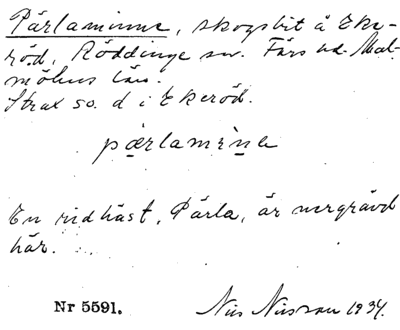 Pärlaminne, skogsbit å Eke-
röd, Röddinge sn. Färs hd. Mal-
möhus län.
Strax so. d i Ekeröd.
pærlamina
En ridhäst, Pärla, är nergrävd
här.
Nr 5591. Nils Nilsson 1934.